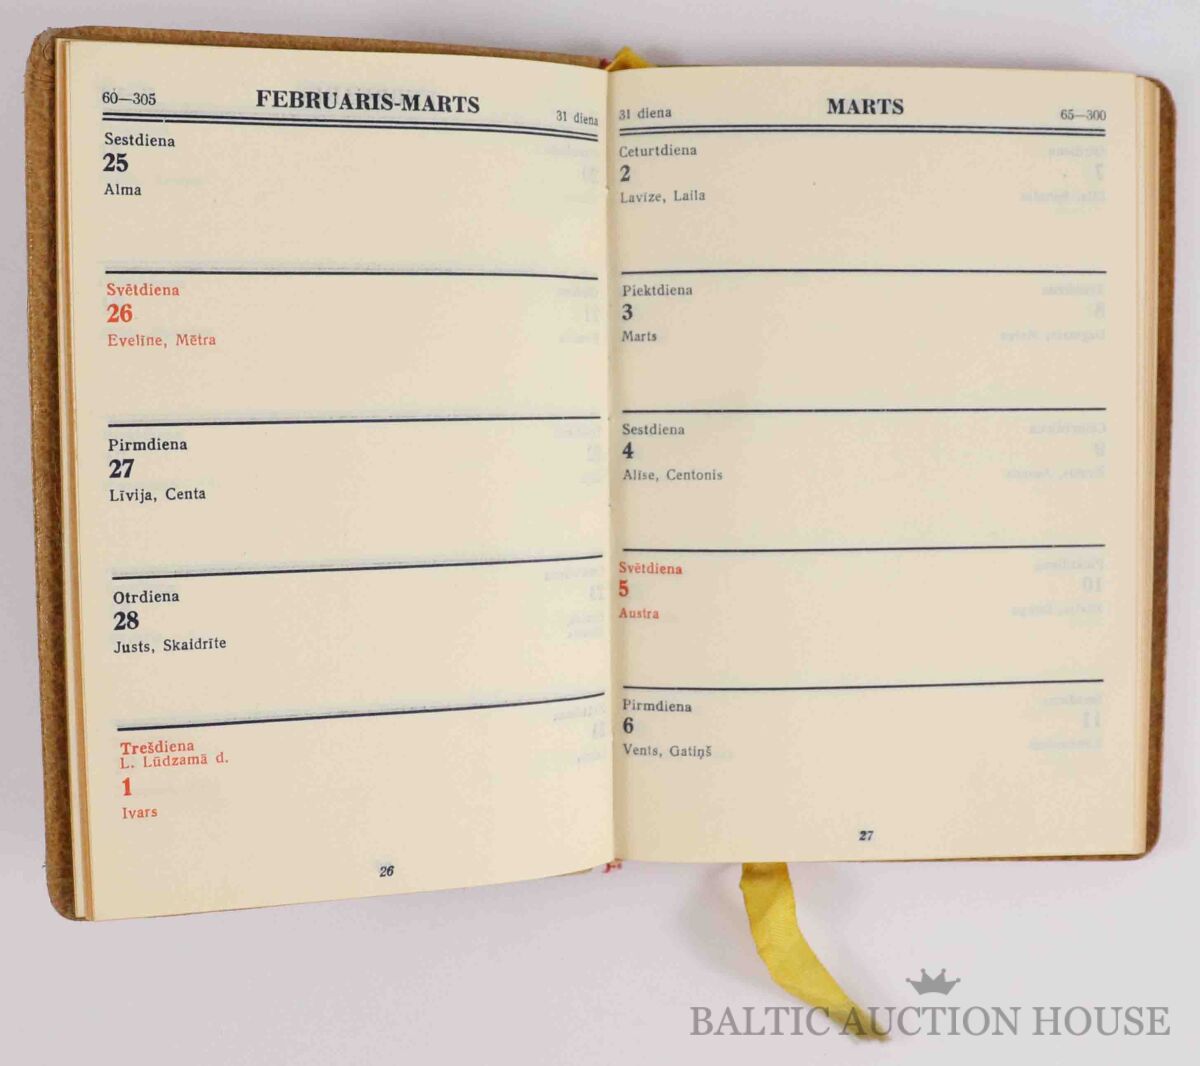 60—305 FEBRUARIS-MARTS 31 diena
Sestdiena
25
Alma
Svētdiena
26
Evelīne, Mētra
Pirmdiena
27
Līvija, Centa
Otrdiena
28
Justs, Skaidrīte
Trešdiena
L. Lūdzamā d.
1
Ivars
26
31 diena MARTS 65—300
Ceturtdiena
2
Lavīze, Laila
Piektdiena
3
Marts
Sestdiena
4
Alīse, Centonis
Svētdiena
5
Austra
Pirmdiena
6
Vents, Gatiņš
27
BALTIC AUCTION HOUSE